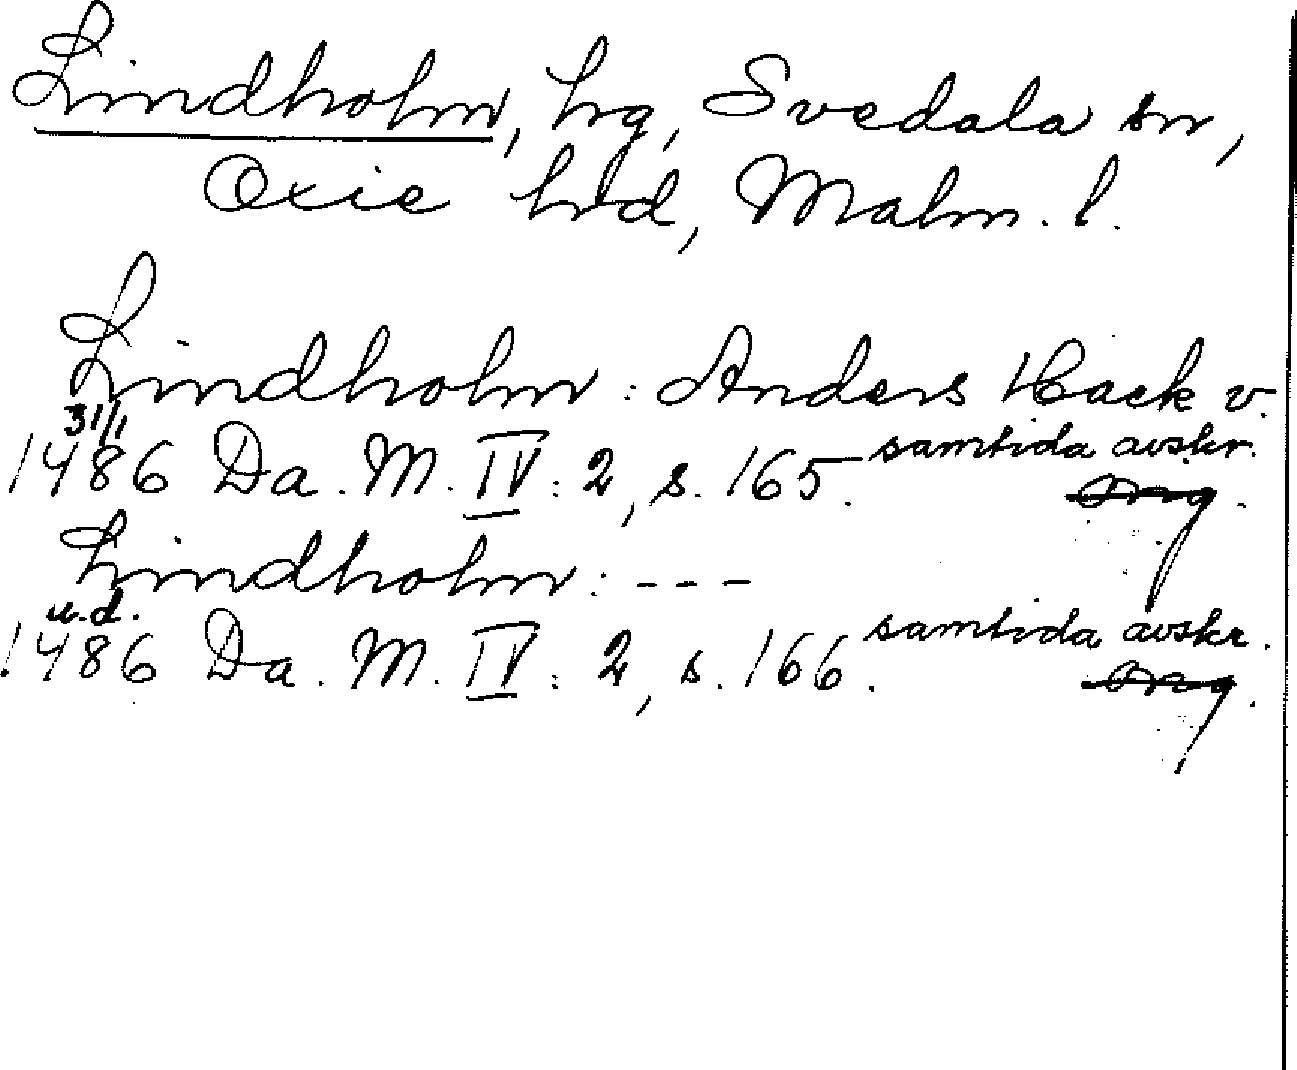 Lindholm, hg, Svedala sn,
Oxie hd, Malm. l.
Lindholm: Anders Hack v.
31/1
1486 Da. M. IV: 2, s. 165. samtida avskr.
orig.
Lindholm: ---
u.d.
1486 Da. M. IV: 2, s. 166. samtida avskr.
orig.